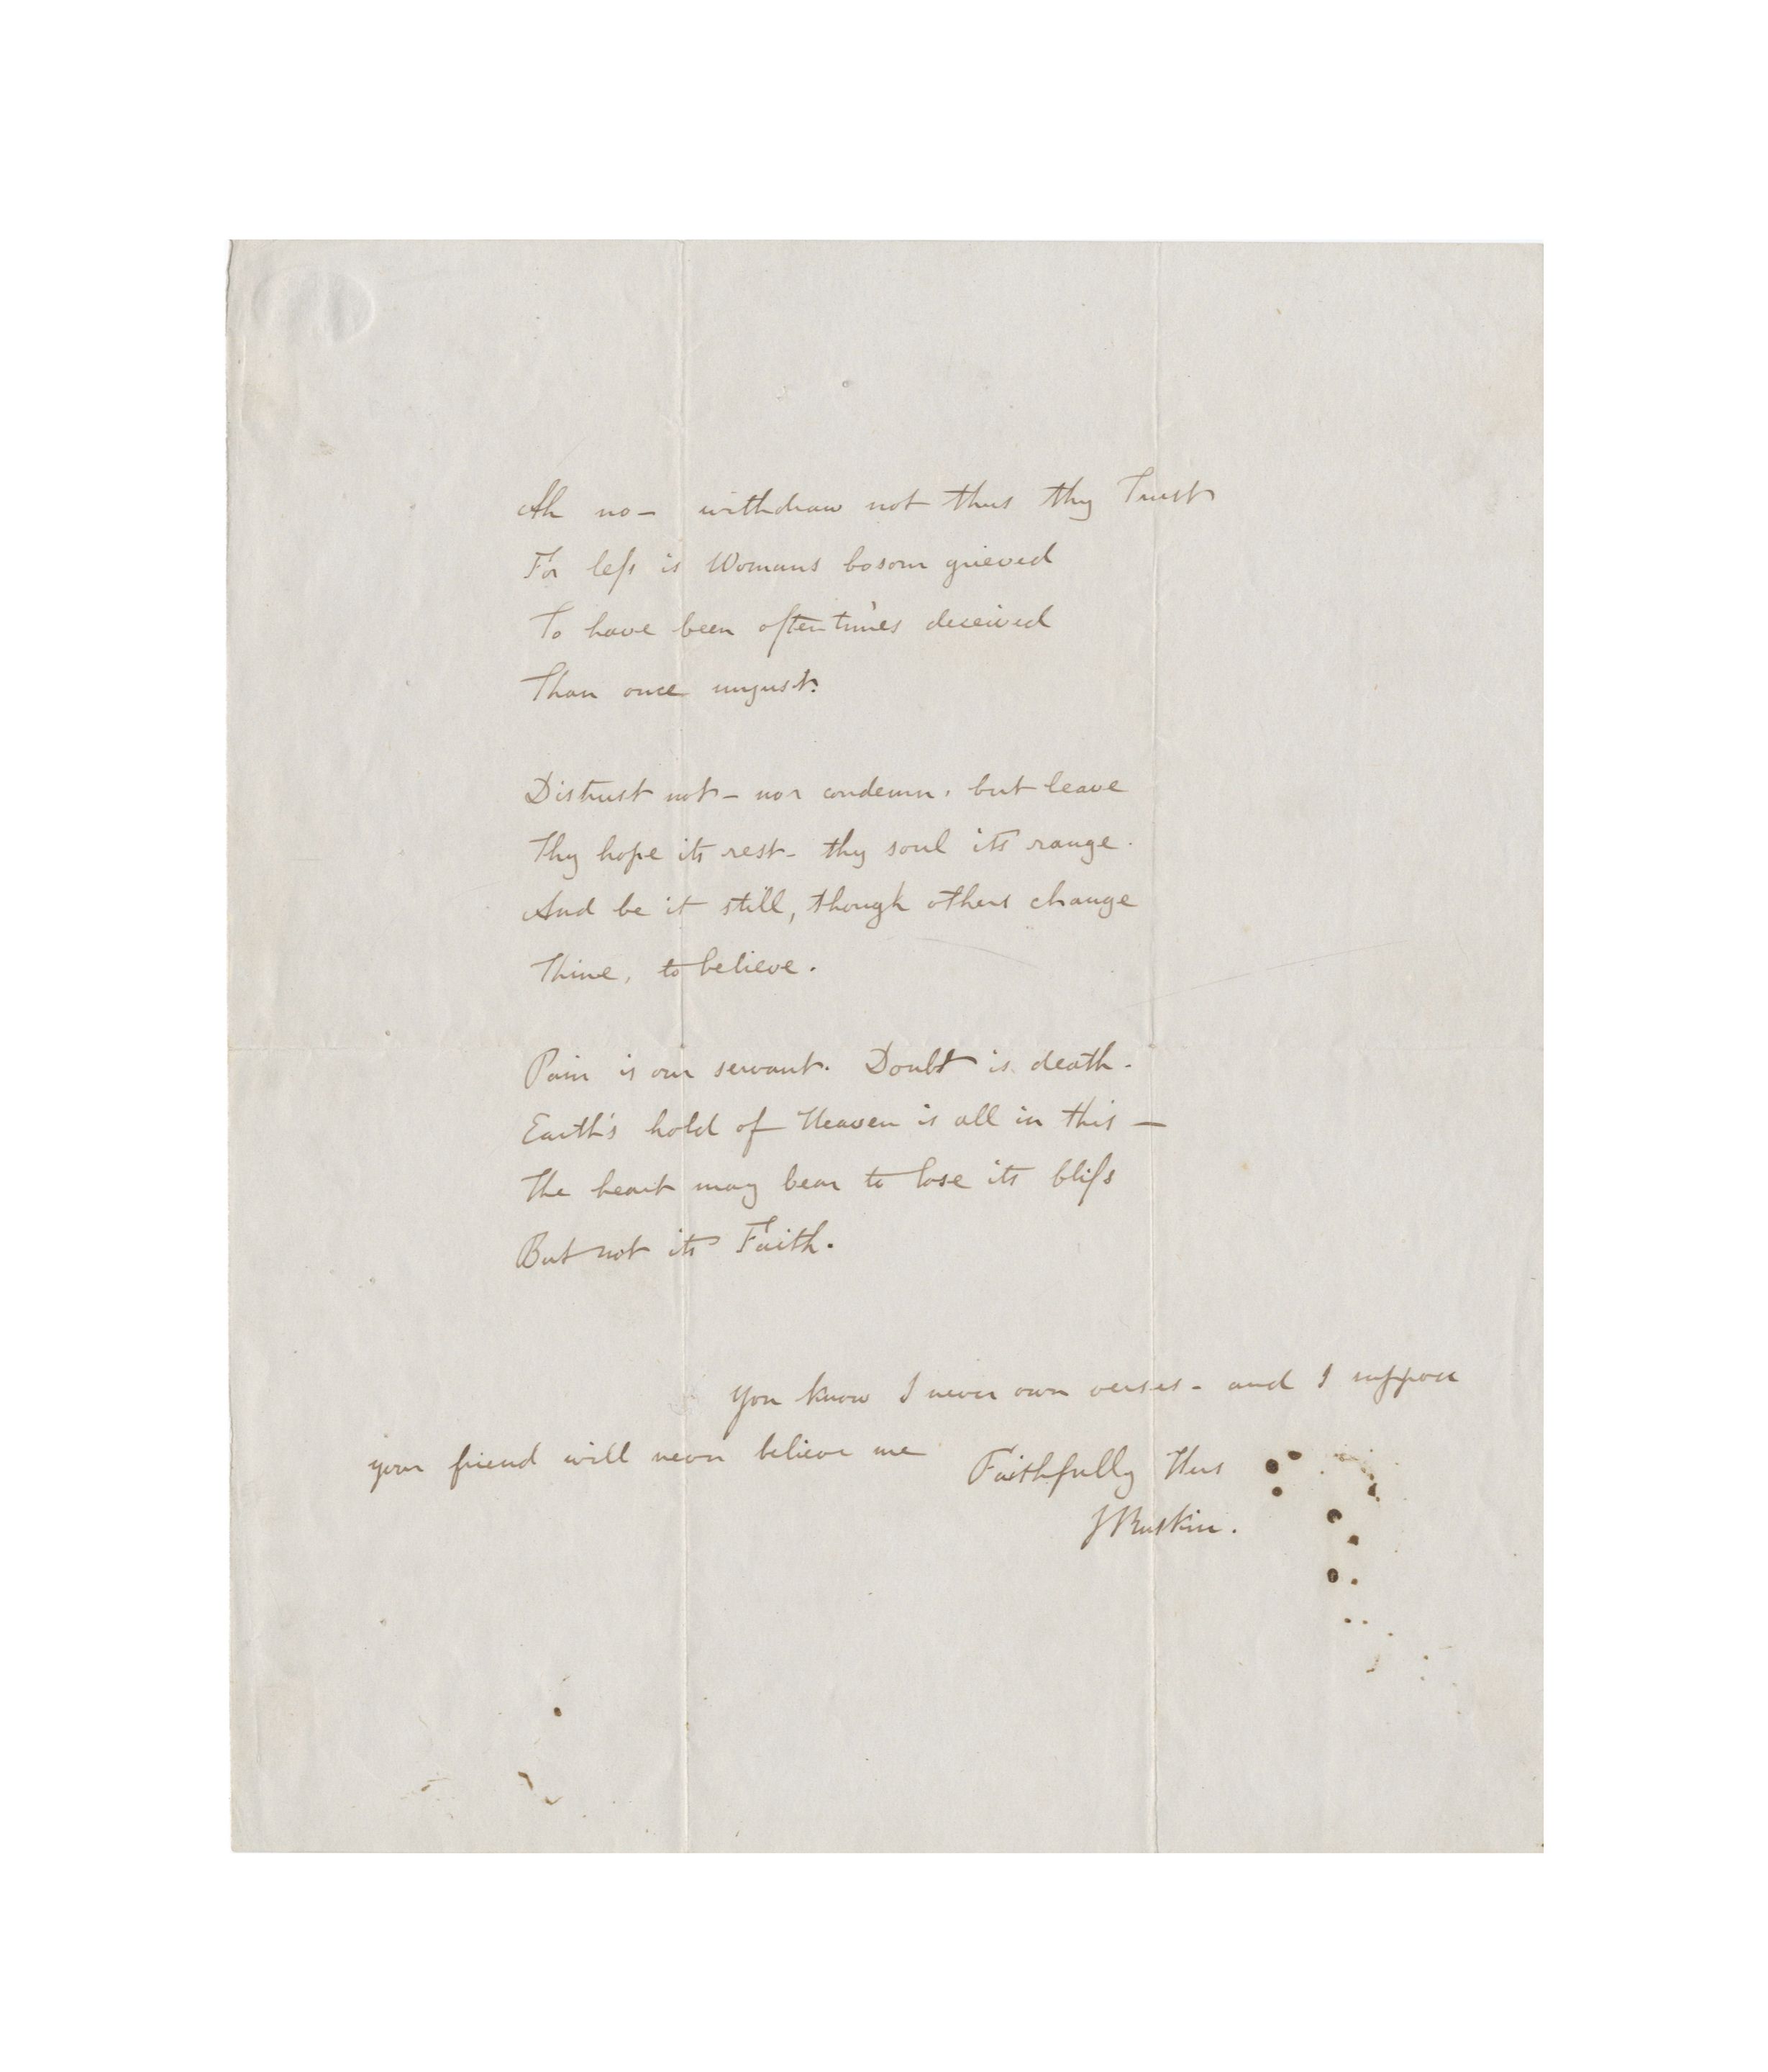 Ah no – withdraw not thus thy Trust
For leſs is Womans bosom grieved
To have been oftentimes deceived
Than once unjust.
Distrust not – nor condemn, but leave
Thy hope its rest – thy soul its range.
And be it still, though others change
Thine, to believe.
Pain is our servant. Doubt is death.
Earth's hold of Heaven is all in this –
The heart may bear to lose its bliſs
But not its Faith.
You know I never own verses – and I suppose
your friend will never believe me Faithfully Hers
JRuskin.